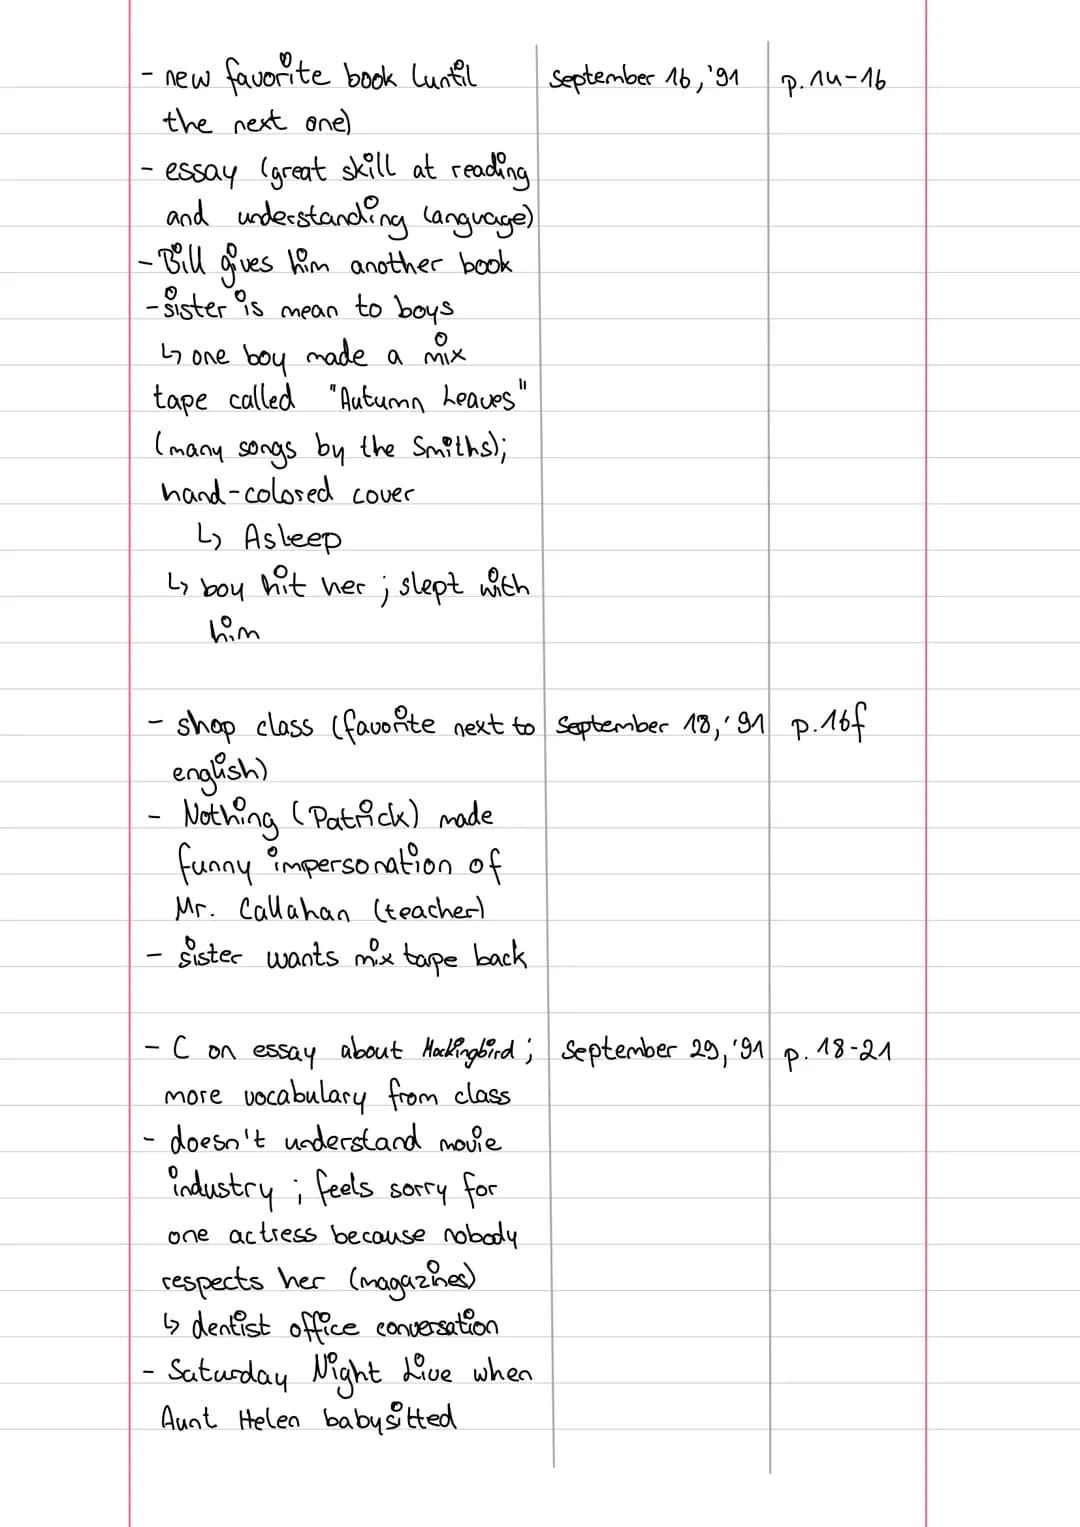 - new favorite book (until September 16, '91 p. 14-16
the next one)
- essay (great skill at reading
and understanding language)
- Bill gives him another book
- sister is mean to boys
↳ one boy made a mix
tape called "Autumn Leaves"
(many songs by the Smiths);
hand-colored cover
↳ Asleep
↳ boy hit her ; slept with
him
- shop class (favorite next to September 18, '91 p. 16f
english)
- Nothing (Patrick) made
funny impersonation of
Mr. Callahan (teacher)
- sister wants mix tape back
- C on essay about Mockingbird ; September 29, '91 p. 18-21
more vocabulary from class
- doesn't understand movie
industry ; feels sorry for
one actress because nobody
respects her (magazines)
↳ dentist office conversation
- Saturday Night Live when
Aunt Helen babysitted